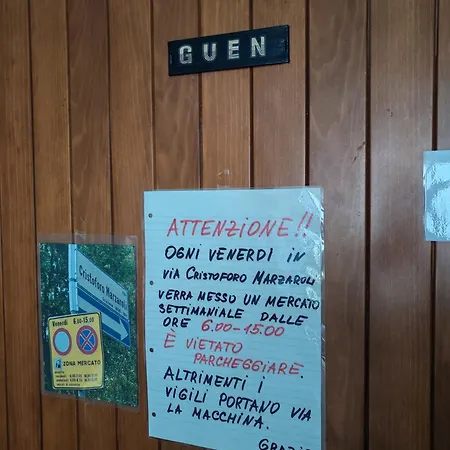 GUEN
ATTENZIONE!!
OGNI VENERDI IN
VIA CRISTOFORO MARZAROLI
VERRA MESSO UN MERCATO
SETTIMANIALE DALLE
ORE 6.00-15.00
È VIETATO
PARCHEGGIARE.
ALTRIMENTI I
VIGILI PORTANO VIA
LA MACCHINA.
Cristoforo Marzaroli
Venerdì 6.00-15.00
ZONA MERCATO